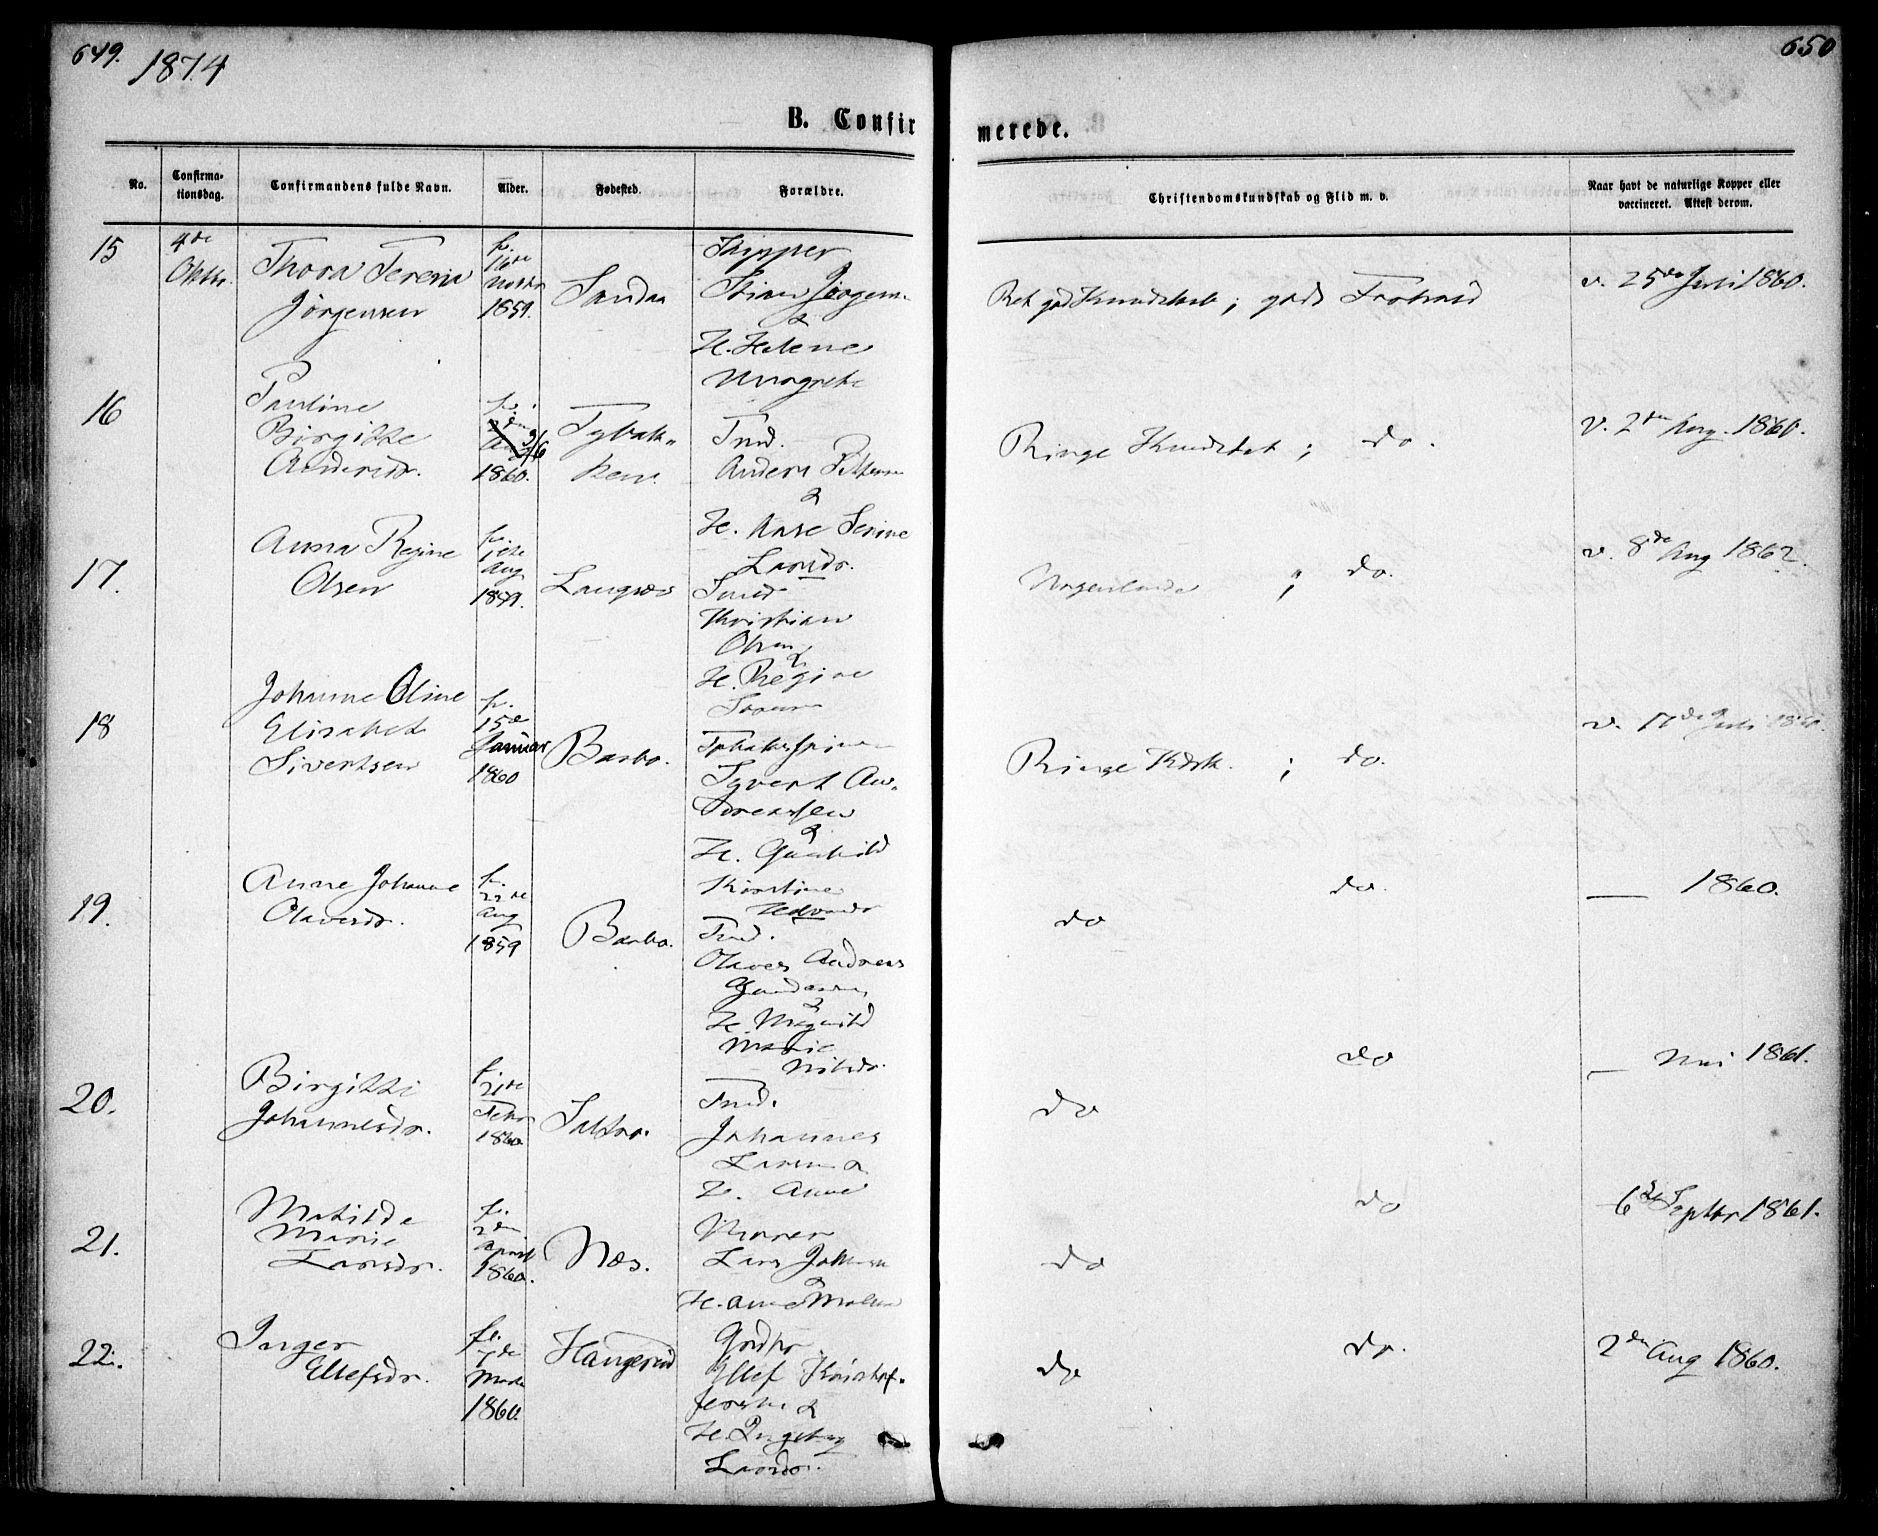 649.
1874
650
B. Confir
merede.
No.
Confirma-
tionsdag.
Confirmandens fulde Navn.
Alder.
Fødested.
Forældre.
Christendomskundskab og Flid m. v.
Naar havt de naturlige Kopper eller
vaccineret. Attest derom.
15
4de
Oktbr.
Thora Teresia
Jörgensen
f.
16de
Novbr
1859.
Sandaa
Skipper
Jörgens.
&
H. Helene
Margrete
Ret god Kundskab; god Forhold
v. 25de Juli 1860.
16
Pauline
Birgitte
Andersdr.
f.
2den
2/6
1860.
Tybak-
ken.
Tmd.
Anders Pettersen
&
H. Aase Serine
Larsdr.
Ringe Kundskab; do.
V. 2den Aug. 1860.
17.
Anna Regine
Olsen
f.
1ste
Aug
1859.
Langnæs
Smed
Kristian
Olsen
&
H. Regine
; do.
v. 8de Aug 1862.
18
Johanne Oline
Elisabet
Sivertsen
f.
15de
Januar
1860
Barbo.
Syvert An-
dreassen
&
H. Gunhild
Kirstine
Ringe Kdsk. ; do.
v. 17de Juli 1860.
19.
Anne Johanne
Olavesdr.
f.
22de
Aug
1859
Barbo.
Tmd.
Olaves Andreas
Gundersen
&
H. Magnild
Marie
Nilsdr.
do
do.
— 1860.
20.
Birgitte
Johannesdr.
f.
21de
Febr
1860
Saltrø.
Tmd.
Johannes
Larsen &
H. Anne
do
do
— Mai 1861.
21.
Matilde
Marie
Larsdr.
f.
2den
April
1860.
Næs.
Murer
Lars Johnsen
&
H. Anne Malene
do
do
6de Septbr 1861.
22.
Inger
Ellefsdr.
f.
7de
Marts
1860.
Haugerød
Gordbr.
Ellef Kristof-
fersen &
H. Ingeborg
Larsdr.
do
do.
2den Aug 1860.